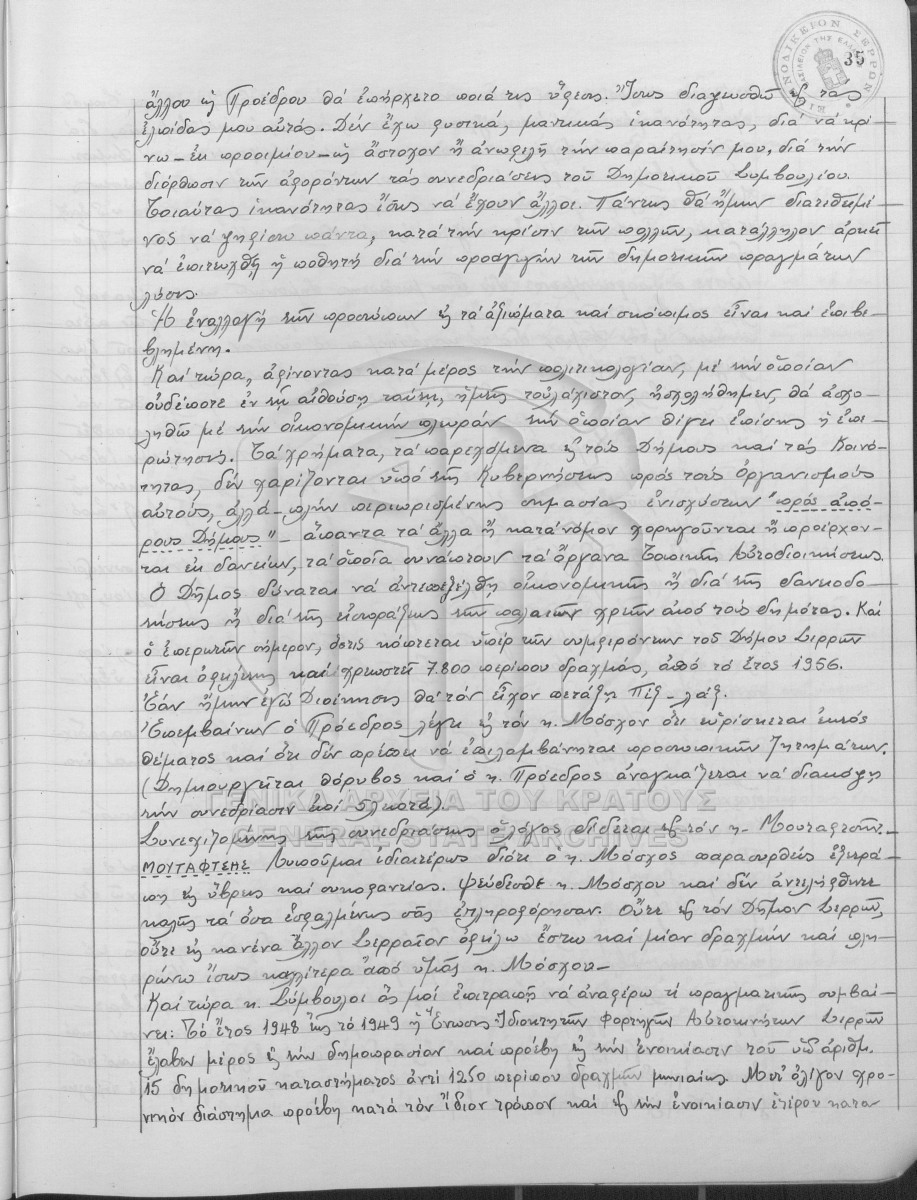 35
ἄλλου ὡς Προέδρου θά ἐπήρχετο ποιά τις ὕφεσις. Ἴσως διαψευσθῶ εἰς τάς
ἐλπίδας μου αὐτάς. Δέν ἔχω φυσικά, μαντικάς ἱκανότητας, διά νά κρί-
νω – ἐκ προοιμίου – ὡς ἄστοχον ἤ ἀνωφελῆ τήν παραίτησίν μου, διά τήν
διόρθωσιν τῶν ἀφορόντων τάς συνεδριάσεις τοῦ Δημοτικοῦ Συμβουλίου.
Τοιαύτας ἱκανότητας ἴσως νά ἔχουν ἄλλοι. Πάντως θά ἤμην διατεθειμέ-
νος νά ψηφίσω πάντα, κατά τήν κρίσιν τῶν πολλῶν, κατάλληλον ἀρκεῖ
νά ἐπιτευχθῇ ἡ ποθητή διά τήν προαγωγήν τῶν δημοτικῶν πραγμάτων
λύσις.
Ἡ ἐναλλαγή τῶν προσώπων εἰς τά ἀξιώματα καί σκόπιμος εἶναι καί ἐπιβε-
βλημένη.
Καί τώρα, ἀφίνοντας κατά μέρος τήν πολιτικολογίαν, μέ τήν ὁποίαν
οὐδέποτε ἐν τῇ αἰθούσῃ ταύτῃ, ἡμεῖς τοὐλάχιστον, ἠσχολήθημεν, θά ἀσχο-
ληθῶ μέ τήν οἰκονομικήν πλευράν τήν ὁποίαν θίγει ἐπίσης ἡ ἐπε-
ρώτησις. Τά χρήματα, τά παρεχόμενα εἰς τούς Δήμους καί τάς Κοινό-
τητας, δέν χαρίζονται ὑπό τῆς Κυβερνήσεως πρός τούς Ὀργανισμούς
αὐτούς, ἀλλά – πλήν περιωρισμένης σημασίας ἐνισχύσεων "πρός ἀπό-
ρους Δήμους" – ἅπαντα τά ἄλλα ἤ κατά νόμον χορηγοῦνται ἤ προέρχον-
ται ἐκ δανείων, τά ὁποῖα συνάπτουν τά ὄργανα Τοπικῆς Αὐτοδιοικήσεως.
Ὁ Δῆμος δύναται νά ἀντεπεξέλθῃ οἰκονομικῶς ἤ διά τῆς δανειοδο-
τήσεως ἤ διά τῆς εἰσπράξεως τῶν παλαιῶν χρεῶν ἀπό τούς δημότας. Καί
ὁ ἐπερωτῶν σήμερον, ὅστις κόπτεται ὑπέρ τῶν συμφερόντων τοῦ Δήμου Σερρῶν
εἶναι ὀφειλέτης καί χρεωστεῖ 7.800 περίπου δραχμάς, ἀπό τό ἔτος 1956.
Ἐάν ἤμην ἐγώ Διοίκησις θά τόν εἶχον πετάξει Πέξ – λάξ.
Ἐπεμβαίνων ὁ Πρόεδρος λέγει εἰς τόν κ. Μόσχον ὅτι εὑρίσκεται ἐκτός
θέματος καί ὅτι δέν πρέπει νά ἐπιλαμβάνηται προσωπικῶν ζητημάτων.
(Δημιουργεῖται θόρυβος καί ὁ κ. Πρόεδρος ἀναγκάζεται νά διακόψῃ
τήν συνεδρίασιν ἐπί 5λεπτον).
Συνεχιζομένης τῆς συνεδριάσεως ὁ λόγος δίδεται εἰς τόν κ. Μουταφτσῆν.
ΜΟΥΤΑΦΤΣΗΣ Λυποῦμαι ἰδιαιτέρως διότι ὁ κ. Μόσχος παρασυρθείς ἐξετρά-
πη εἰς ὕβρεις καί συκοφαντίας. Ψεύδεσθε κ. Μόσχου καί δέν ἀντελήφθητε
καλῶς τά ὅσα ἐσφαλμένως σᾶς ἐπληροφόρησαν. Οὔτε εἰς τόν Δῆμον Σερρῶν,
οὔτε εἰς κανένα ἄλλον Σερραῖον ὀφείλω ἔστω καί μίαν δραχμήν καί πλη-
ρώνω ἴσως καλλίτερα ἀπό ὑμᾶς κ. Μόσχου –
Καί τώρα κ. Σύμβουλοι ἄς μοί ἐπιτραπῇ νά ἀναφέρω τί πραγματικῶς συμβαί-
νει: Τό ἔτος 1948 ἕως τό 1949 ἡ Ἕνωσις Ἰδιοκτητῶν Φορτηγῶν Αὐτοκινήτων Σερρῶν
ἔλαβεν μέρος εἰς τήν δημοπρασίαν καί προέβη εἰς τήν ἐνοικίασιν τοῦ ὑπ' ἀριθμ.
15 δημοτικοῦ καταστήματος ἀντί 1250 περίπου δραχμῶν μηνιαίως. Μετ' ὀλίγον χρο-
νικόν διάστημα προέβη κατά τόν ἴδιον τρόπον καί εἰς τήν ἐνοικίασιν ἑτέρου κατα-
ΓΕΝΙΚΑ ΑΡΧΕΙΑ ΤΟΥ ΚΡΑΤΟΥΣ
GENERAL STATE ARCHIVES